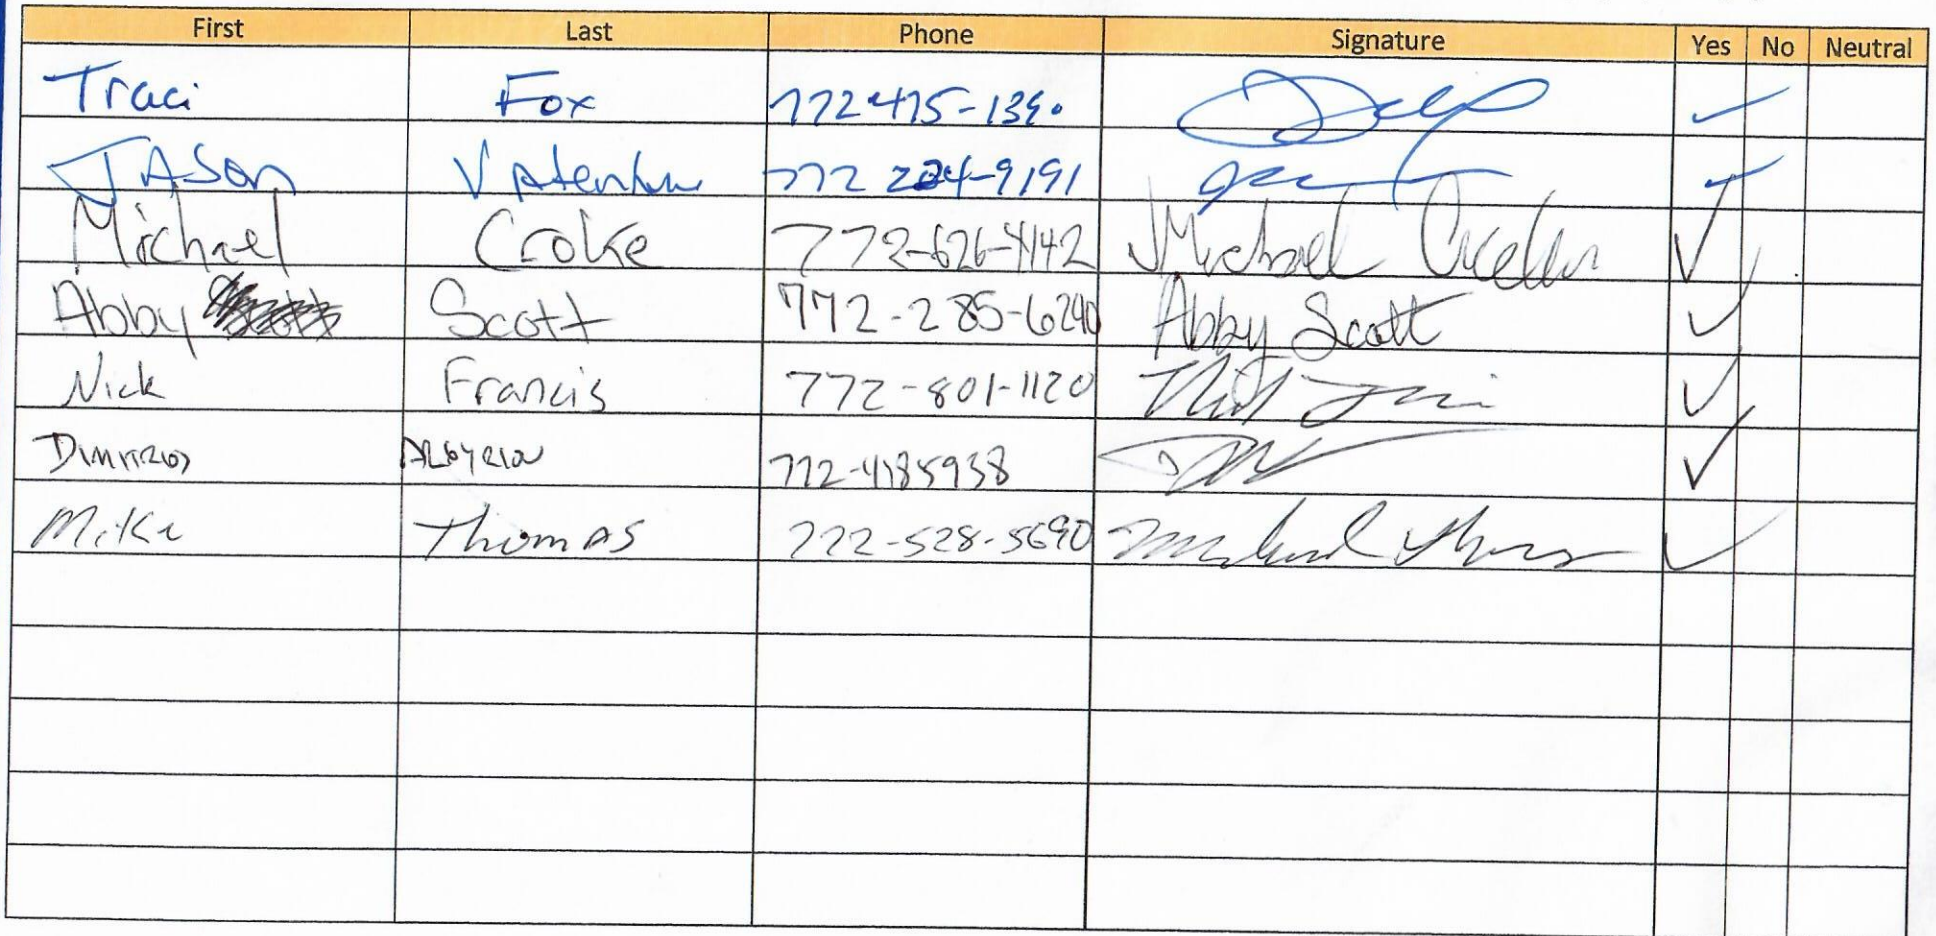 First Last Phone Signature Yes No Neutral
Traci Fox 772 475-1390
JASon 772 224-9191
Michael Croke 772-626-4142 Michael
Abby Scott 772-285-6240 Abby Scott
Nick Francis 772-801-1120
772-4185938
Mike Thomas 772-528-5690